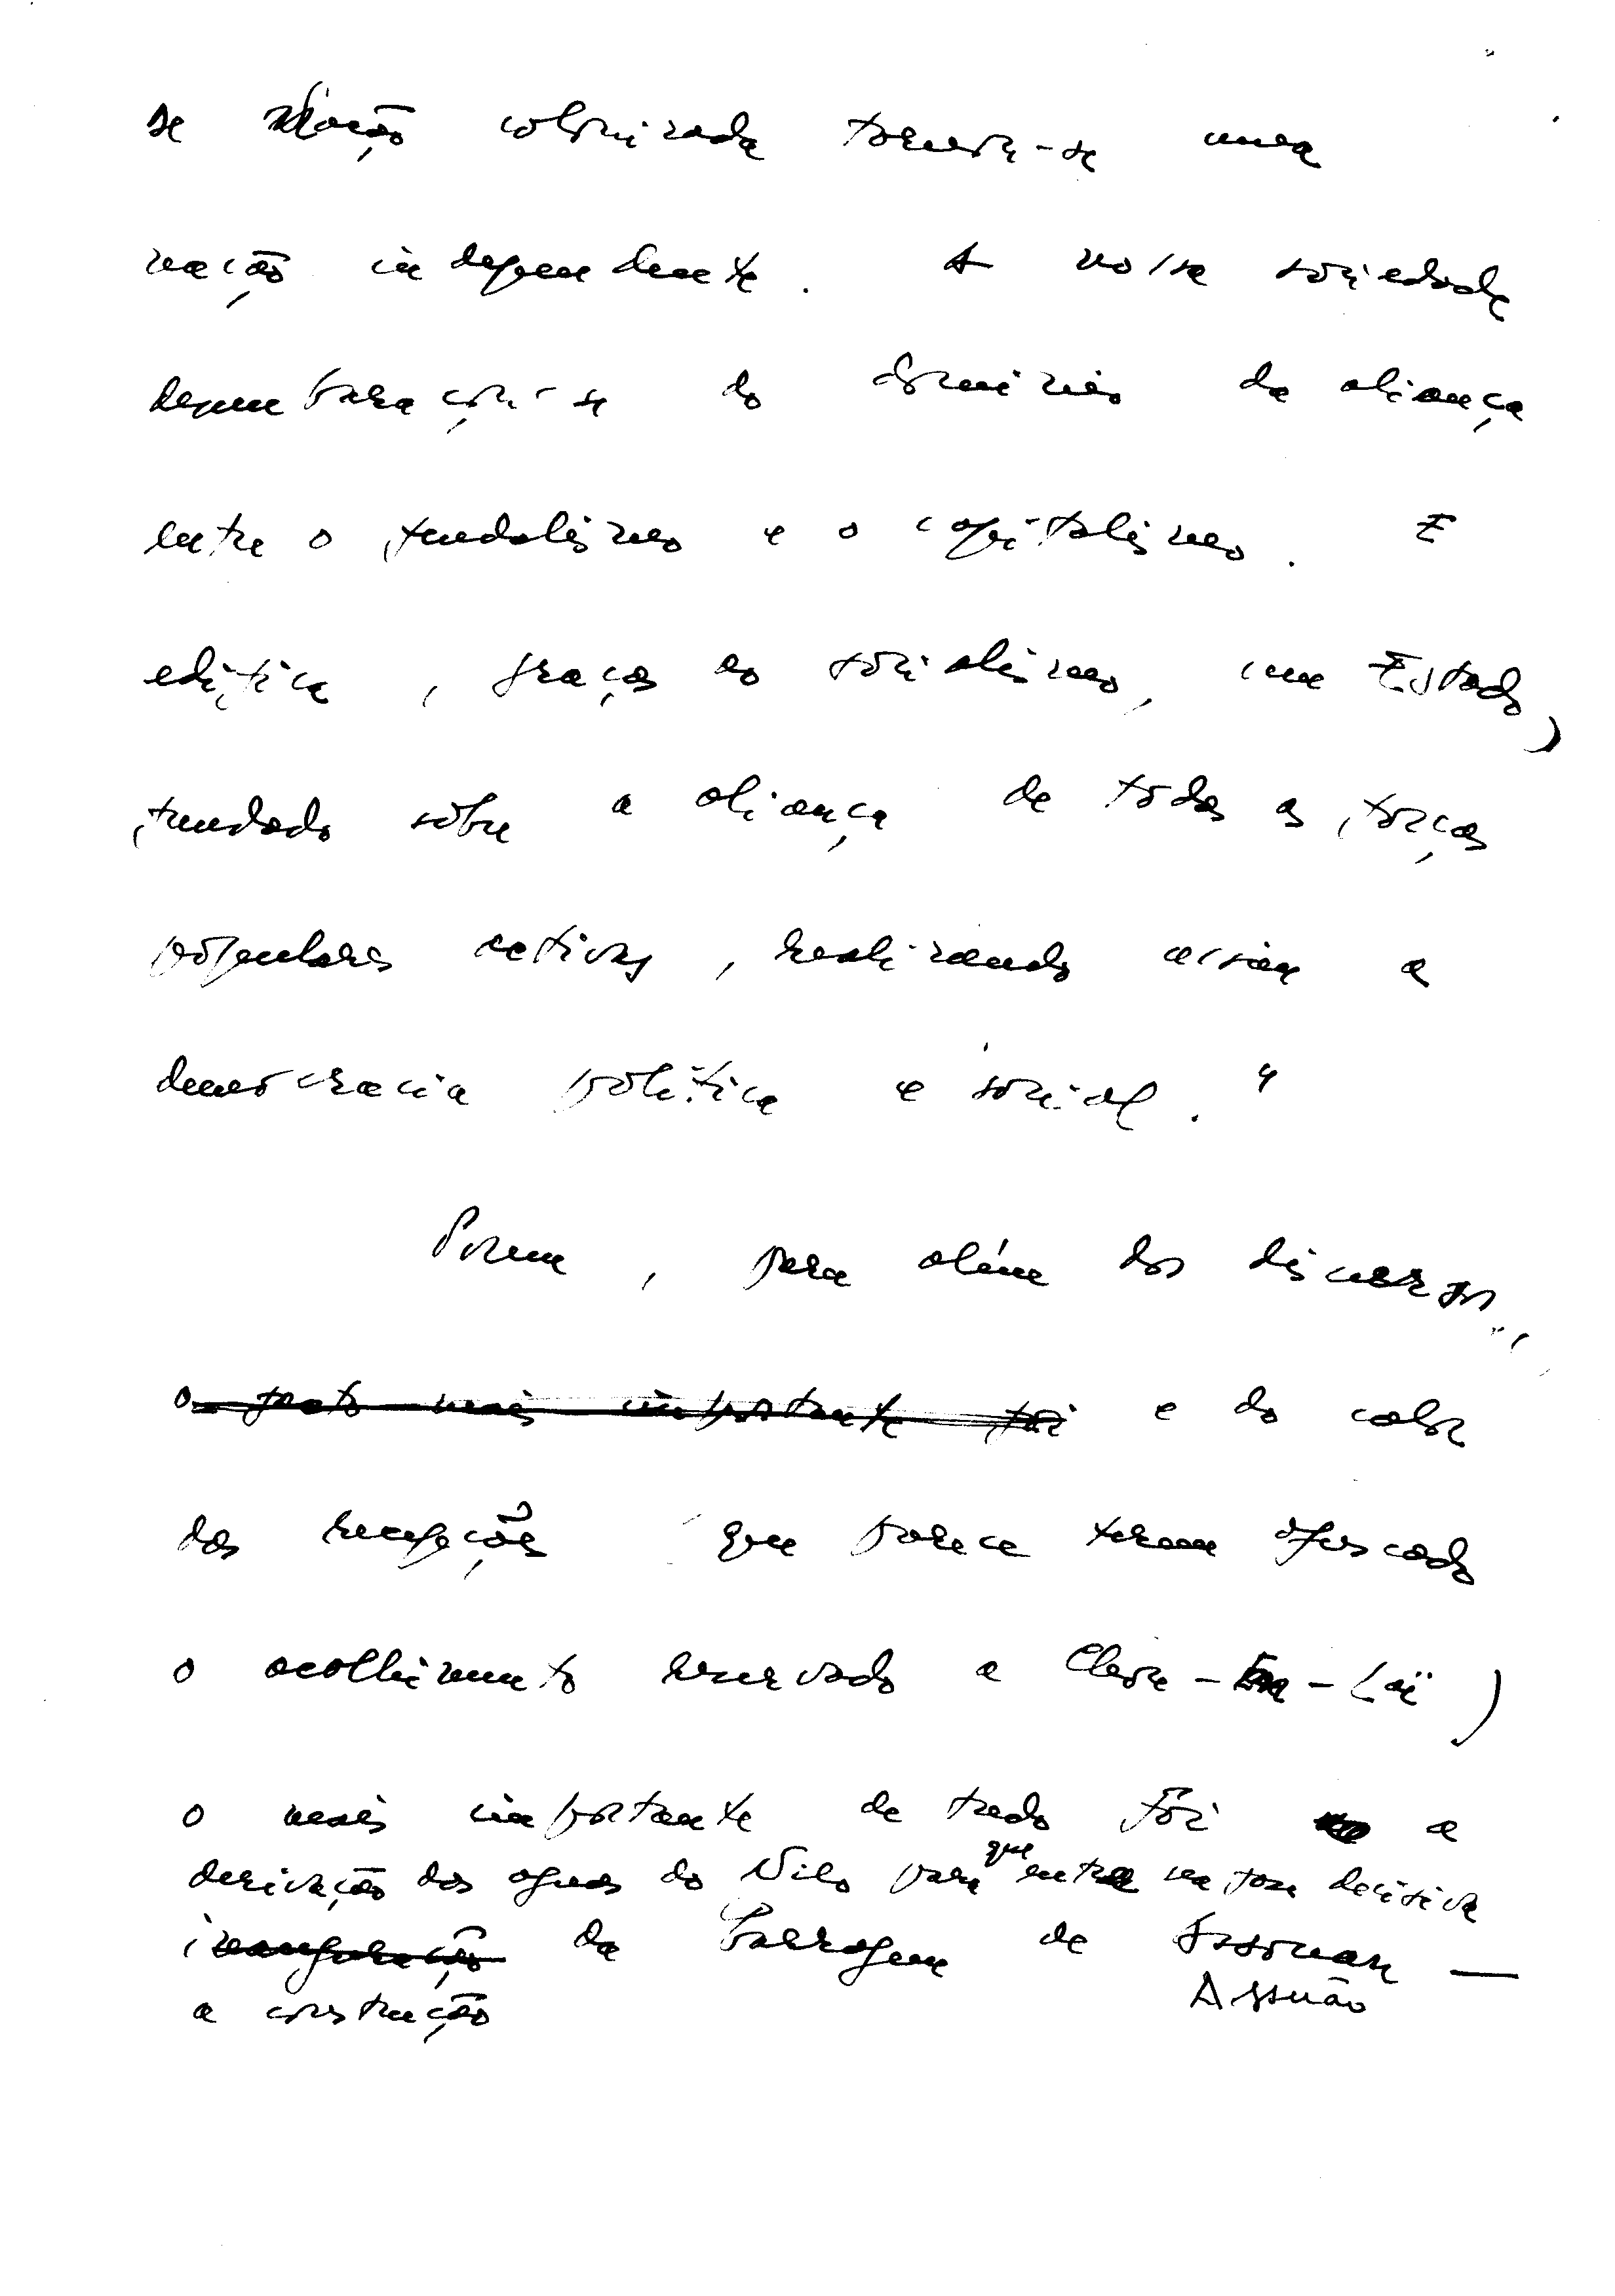 se nação colonizada tornou-se uma
nação independente. A nossa sociedade
desembaraçou-se do domínio da aliança
entre o feudalismo e o capitalismo. E
edifica, graças ao socialismo, um Estado,
fundado sôbre a aliança de todas as forças
populares activas, realizando assim a
democracia política e social."
Porem, para além dos discursos,
o facto mais importante foi e do calor
das recepções que parece terem ofuscado
o acolhimento reservado a Chou-En-Laï)
o mais importante de tudo foi a
derivação das aguas do Nilo para que entre na fase decisiva
inauguração da Barragem de Assouan —
a construção Assuão